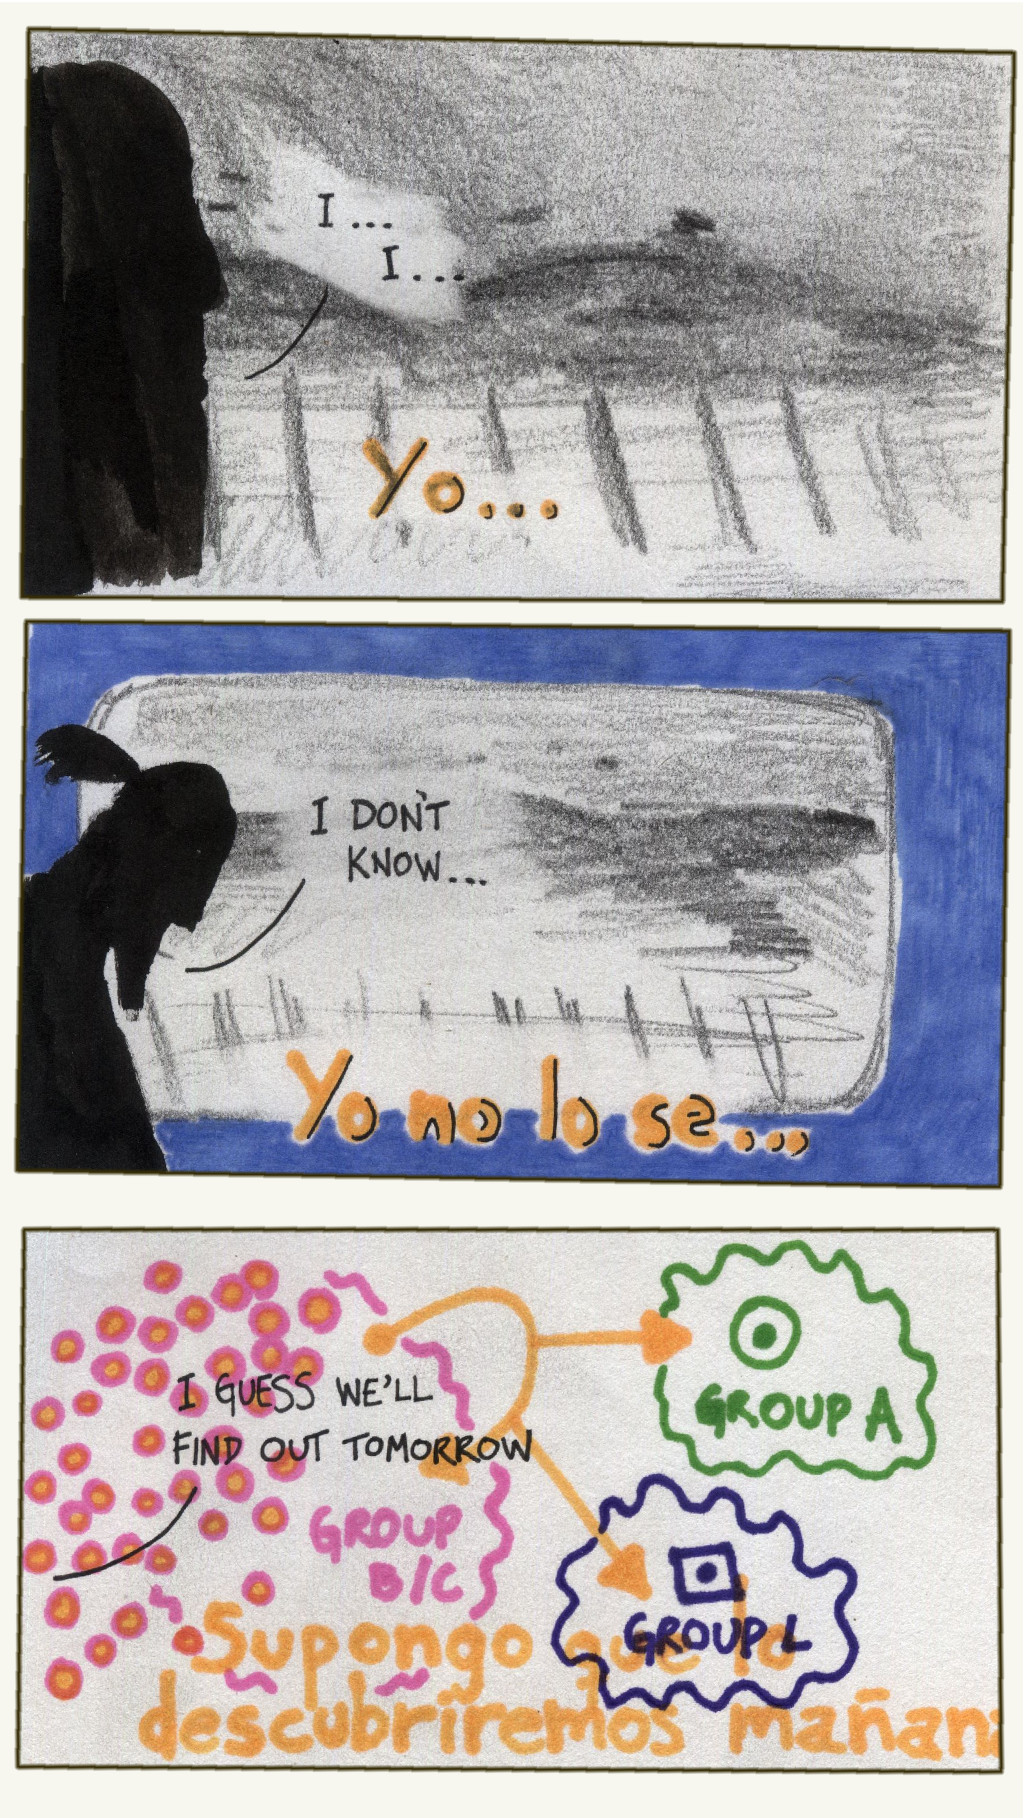 I ...
I ....
Yo...
I DON'T
KNOW...
Yo no lo se...
I GUESS WE'LL
FIND OUT TOMORROW
GROUP A
GROUP
B/C
GROUP L
Supongo que lo
descubriremos mañana